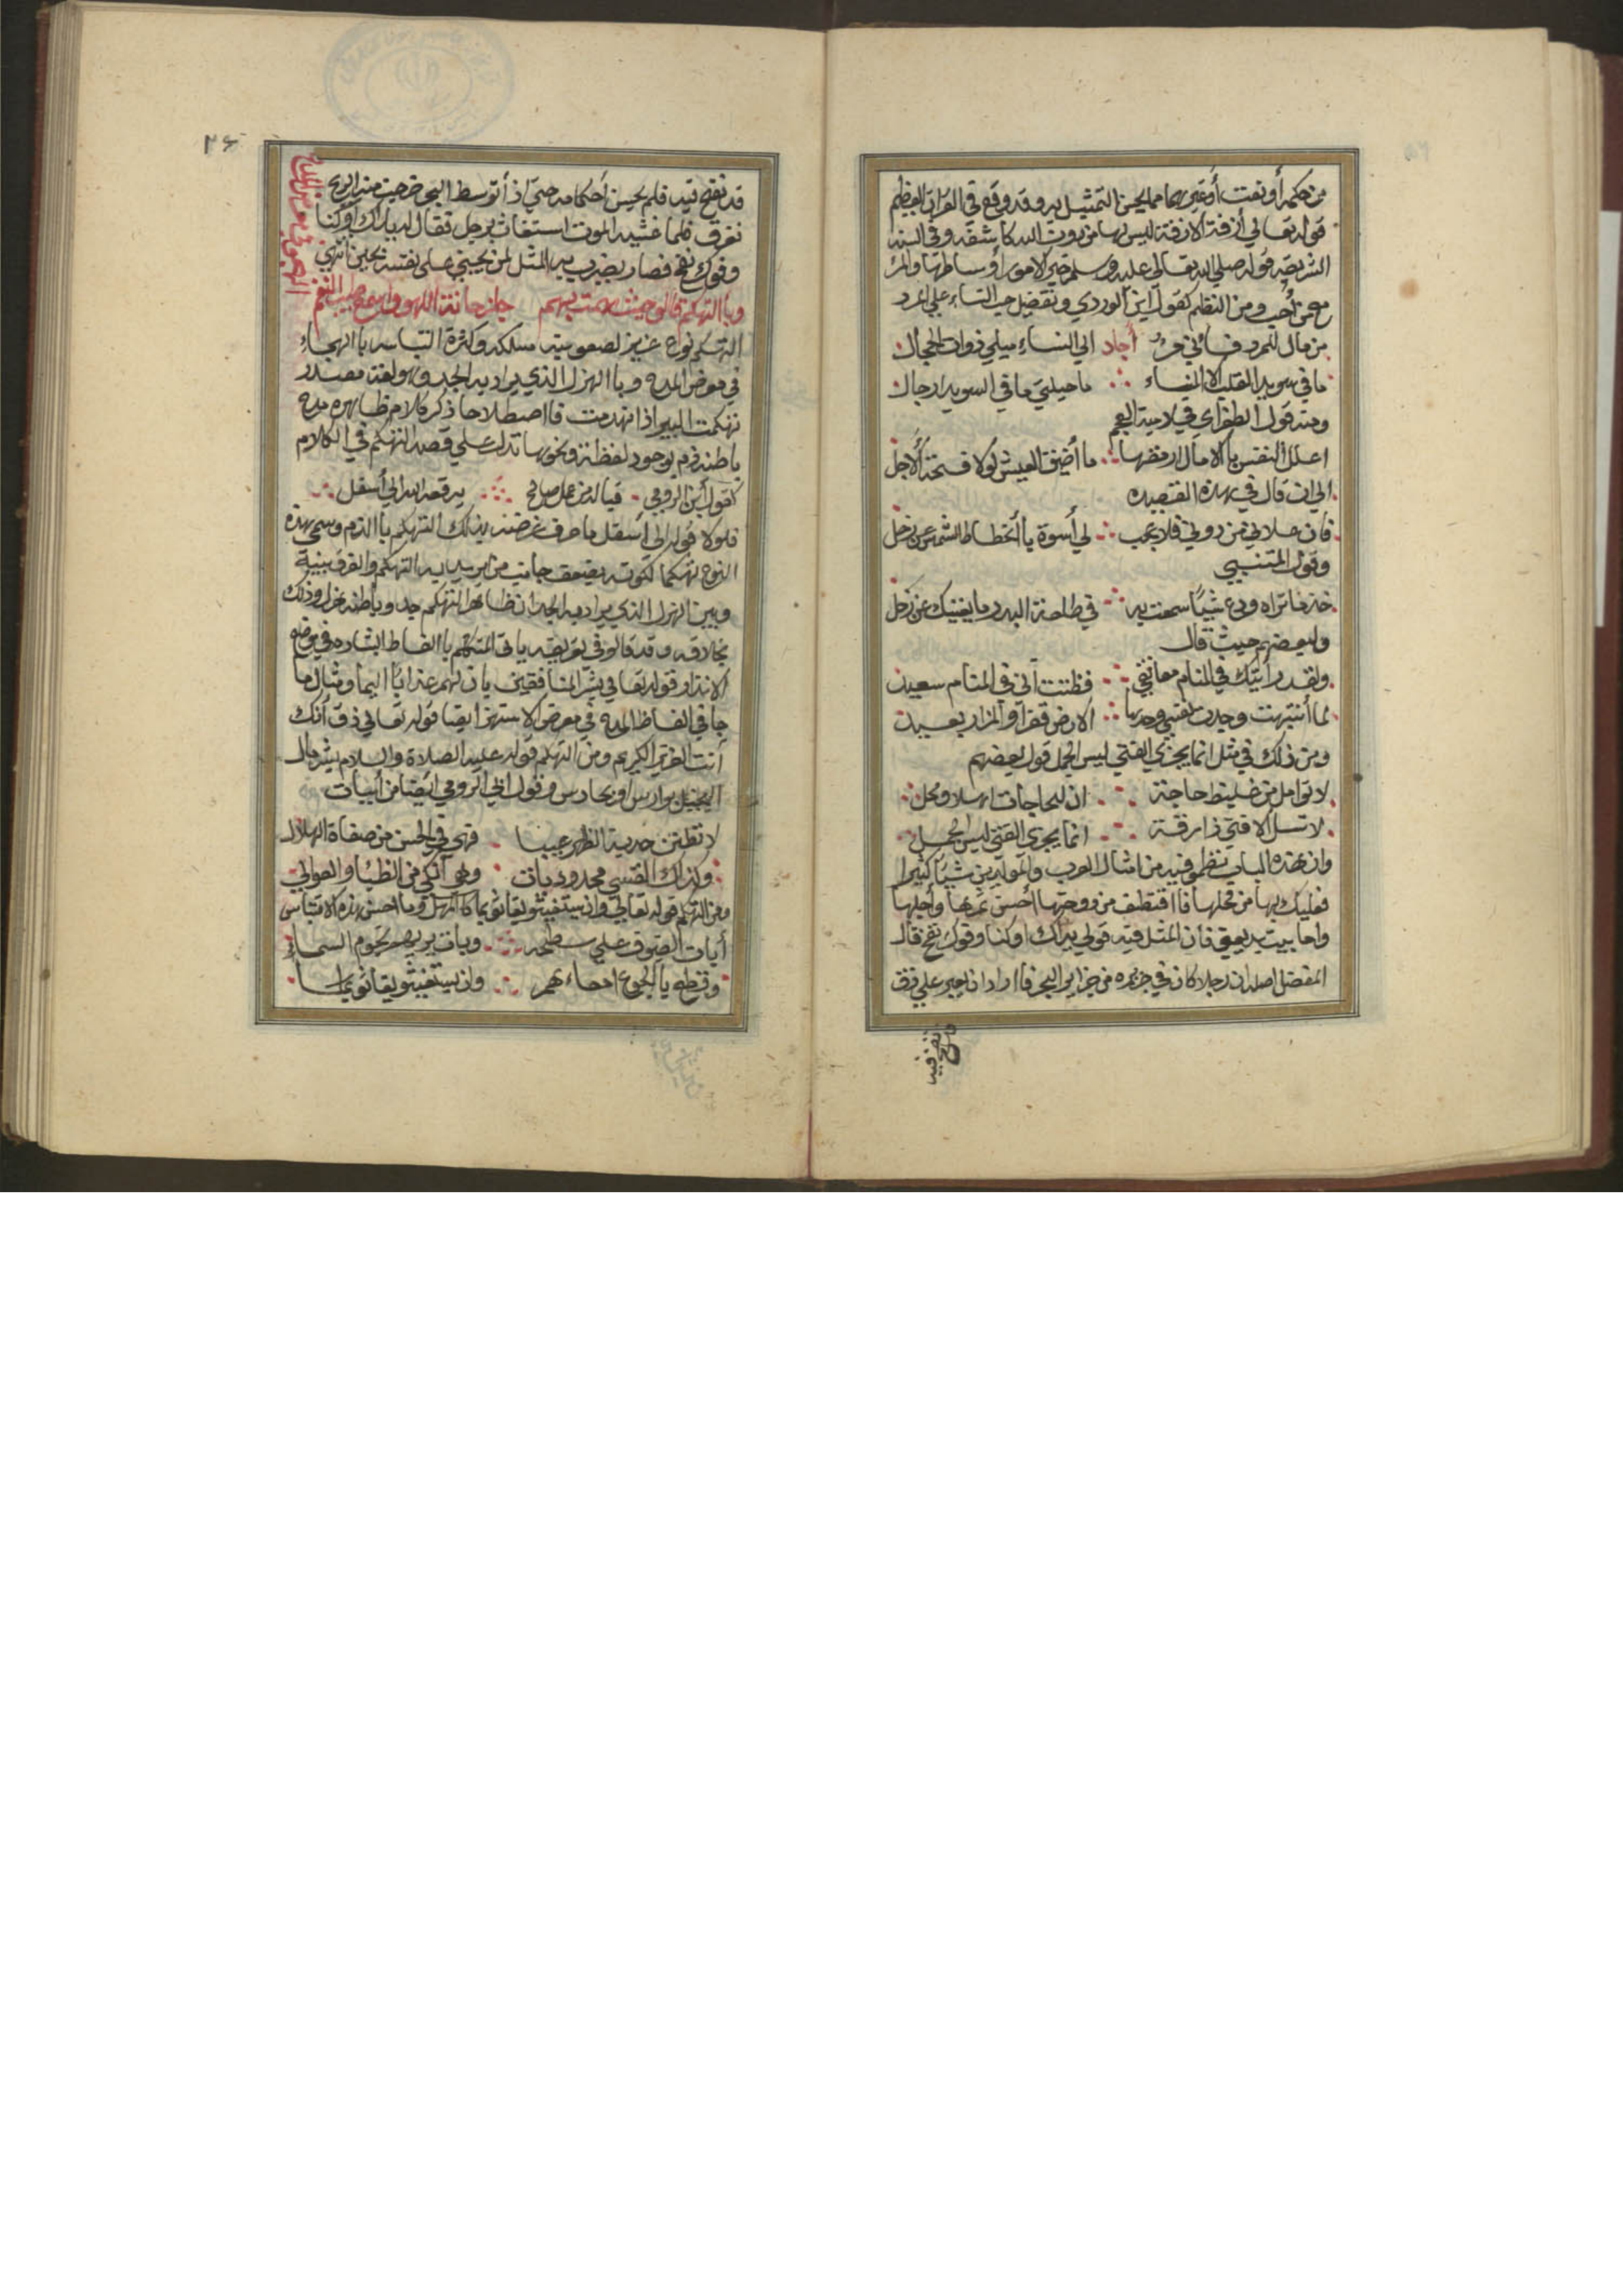 من حكمة أو نعت أو غيرهما مما يحسن التمثيل به وقد وقع في القرآن العظيم
قوله تعالى أزفة الآزفة ليس لها من دون الله كاشفة وفي السنة
الشريفة قوله صلي الله تعالي عليه وسلم خير الامور أوساطها والمرء
مع من أحب ومن النظم كقول ابن الوردي وتفضيل حب النساء علي المرد
من مال للمرد فاني امرؤ أجاد الي النساء ميلي ذوات الجمال
ما في سويدا القلب الا النساء ما حيلتي ما في السويدا رجال
ومنه قول الطغراي في لامية العجم
اعلل النفس بالامال ارمقها ما أضيق العيش لولا فسحة الأجل
الي ان قال في هذه القصيده
فان علاني من دوني فلا عجب لي أسوة باأنحطاط الشمس عن زحل
وقول المتنبي
خذ ما تراه ودع شيئا سمعت به في طلعة البدر ما يغنيك عن زحل
ولبعضهم حيث قال
ولقد رأيتك في المنام معانقي فظننت أني في المنام سعيد
لما أنتبهت وجدت نفسي وحدها الارض قفرا والمزار بعيد
ومن ذلك في مثل انما يجزي الفتي ليس الجمل قول بعضهم
لا توامل من غليظ حاجة ان للحاجات اهلا ومحل
لا تسل الا فتي ذا رقة انما يجزي الفتي ليس الجمل
وان هذه الباب نظمو فيه من امثال العرب والمولدين شيئا كثيرا
فعليك بها من محلها فااقتطف من دوحتها أحسن ثمرها وأجلها
واما بيت بديعي فان المثل فيه قولي يداك اوكتا وفوك نفخ قال
المفضل اصله ان رجلا كان في جزيره من جزاير البحر فاارادان يعبر علي زق
قد نفخ فيه
٢٦
قد نفخ فيه فلم يحسن أحكامه حتي اذ أتوسط البحر خرجت منه الريح
فغرق فلما غشيه الموت استغاث برجل فقال له يداك أوكتا
وفوك نفخ فصار يضرب به المثل لمن يجني علي نفسه بحين انتهي
وباالتهكم قالو حيث همت بهم حان حانة اللهو واسمع طيب النغم
التهكم نوع عزيز لصعوبة مسلكه وكثرة التباسه باالهجاء
في معرض المدح وباالهزل الذي يراد به الجد وهو لغة مصدر
تهكمت البير اذا تهدمت فااصطلاحا ذكر كلام ظاهره مدح
باطنه ذم بوجود لفظة ونحوها تدل علي قصد التهكم في الكلام
كقول أبن الرومي فياله من عمل صالح يرفعه الله الي أسفل
فلولا قوله الي أسفل ما عرف غرضه بذلك التهكم باالذم وسمي هذه
النوع تهكما لكونه يضعف جانب من يراد به التهكم والفرق بينه
وبين الهزل الذي يراد به الجد ان ظاهر التهكم جد وباطنه هزل وذلك
بخلافه وقد قالو في تعريفه ياتي المتكلم باالفاظ البشاره في موضع
الانذار قوله تعالي بشر المنافقين بان لهم عذابا اليما ومثال ما
جا في الفاظ المدح في معرض الاستهزا ايضا قوله تعالي ذق أنك
أنت العزيز الكريم ومن التهكم قوله عليه الصلاة والسلام بشر مال
البخيل بوارث او بحادث وقول ابن الرومي ايضا من أبيات
لا تظنن حدبة الظهر عيبا فهي في الحسن من صفاة الهلال
وكذاك القسي محدودبات وهي أنكي من الظبا والعوالي
ومن التهكم قوله تعالي وان يستغيثو يغاثو بما كاالمهل وما احسن هذه الاقتباس
أبات الضيوف علي سطحه وبات يريهم نجوم السماء
وقطع باالجوع امعاءهم وان يستغيثو يغاثو بما